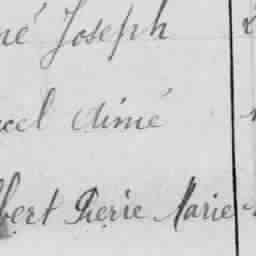 né Joseph
cel Aimé
bert Pierre Marie